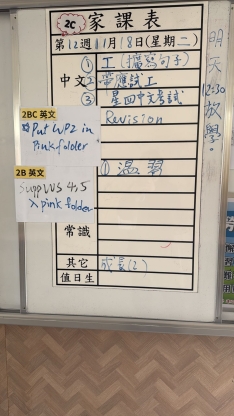 2C 家課表
第12週11月18日(星期二)
中文
① 工(擴寫句子)
② 帶應試工
③ 星四中文考試
2BC 英文
Put WP2 in
Pink folder
Revision
① 溫習
2B 英文
Supp WS 4,5
入 pink folder
常識
其它
成長(2)
值日生
明天12:30放學。